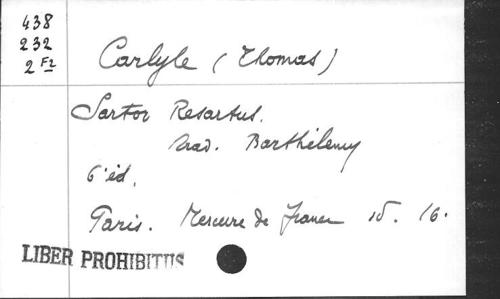 438
232
2 F2
Carlyle (Thomas)
Sartor Resartus.
Trad. Barthélemy
6e éd.
Paris. Mercure de France 16.
LIBER PROHIBITUS